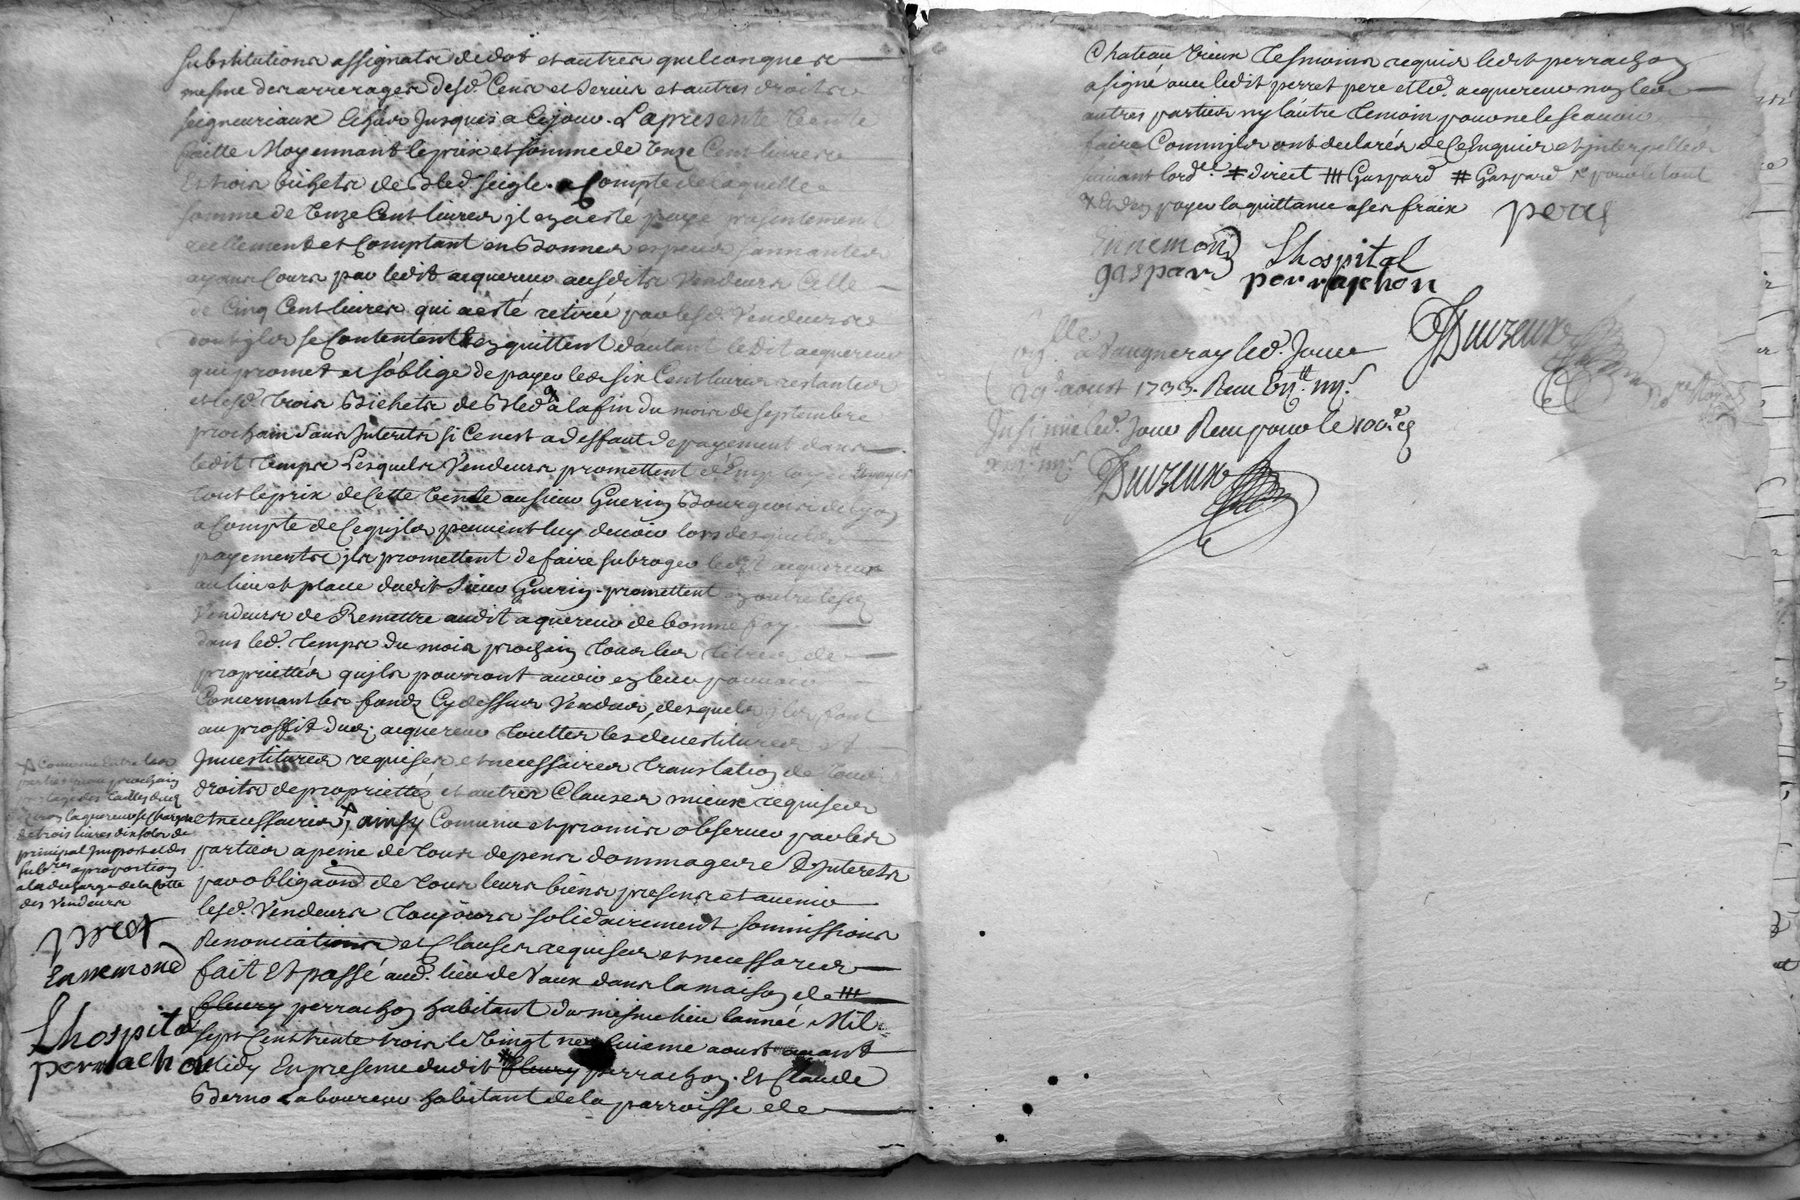 substitutions assignats de dot et autres quelconques
mesme des arrerages desd. Cens et servis et autres droits
seigneuriaux escheus jusques a ce jour. La presente vente
faitte Moyennant le prix et somme de onze Cent livres
Et trois bichets de Bled seigle. a Compte de laquelle
somme de onze Cent livres il en a esté payé presentement
reellement et Comptant en Bonnes especes sonnantes
ayans Cours par ledit acquereur ausdits Vendeurs Celle
de Cinq Cent livres qui a esté retirée par lesd. Vendeurs
dont ils se Contentent Et en quittent d'autant ledit acquereur
qui promet et s'oblige de payer les six Cent livres restantes
et lesd. trois Bichets de Bled a la fin du mois de septembre
prochain sans Interets si Ce n'est a deffaut de payement dans
ledit temps Lesquels Vendeurs promettent d'Employer
tout le prix de Cette Vente au sieur Guerin Bourgeois de Lyon
a Compte de Ce qu'ils peuvent luy devoir lors desquels
payements ils promettent de faire subroger ledit acquereur
au lieu et place dudit sieur Guerin. promettent en outre lesd.
Vendeurs de Remettre audit acquereur de bonne foy
dans led. temps du mois prochain tous les titres de
proprietés qu'ils pourront avoir en leur pouvoir
Concernant les fonds Cy dessus Vendus, desquels ils font
au proffit dud. acquereur touttes les devestitures et
Investitures requises et necessaires translation de tous
droits de proprietés et autres Clauses mieux requises
et necessaires, ainsy Convenu et promis observer par les
parties a peine de tous depens dommages et Interets
par obligaon de tous leurs biens presens et avenir
lesd. Vendeurs toujours solidairement sommissions
Renonciations et Clauses requises et necessaires
fait Et passé aud. lieu de Vaux dans la maison de #
fleury perrachon habitant du mesme lieu l'année Mil
sept Cent trente trois le Vingt neufvieme aoust avant
Midy En presence dudit fleury perrachon. Et Claude
Berno Laboureur habitant de la parroisse de
Convenu Entre les
parties
des tailles
l'acquereur se Charge
de trois livres dix sols de
principal Impost et des
a proportion
a la decharge de la Cotte
des Vendeurs
peret
Ennemond
Lhospital
perrachon
Chateau Vieux tesmoins requis ledit perrachon
a signé avec ledit perret pere et led. acquereur non les
autres parties ny l'autre temoin pour ne le scavoir
faire Comme ils ont declarés de Ce Enquis et interpellés
suivant lord.ce # direct # Gaspard # Gaspard pour le tout
payer la quittance a ses fraix peret
Ennemond Lhospital
gaspard perrachon
Duvzeux
a Vaugneray led. Jour
29 aoust 1733. Receu
Insinué led. Jour Receu pour le 100e
Duvzeux